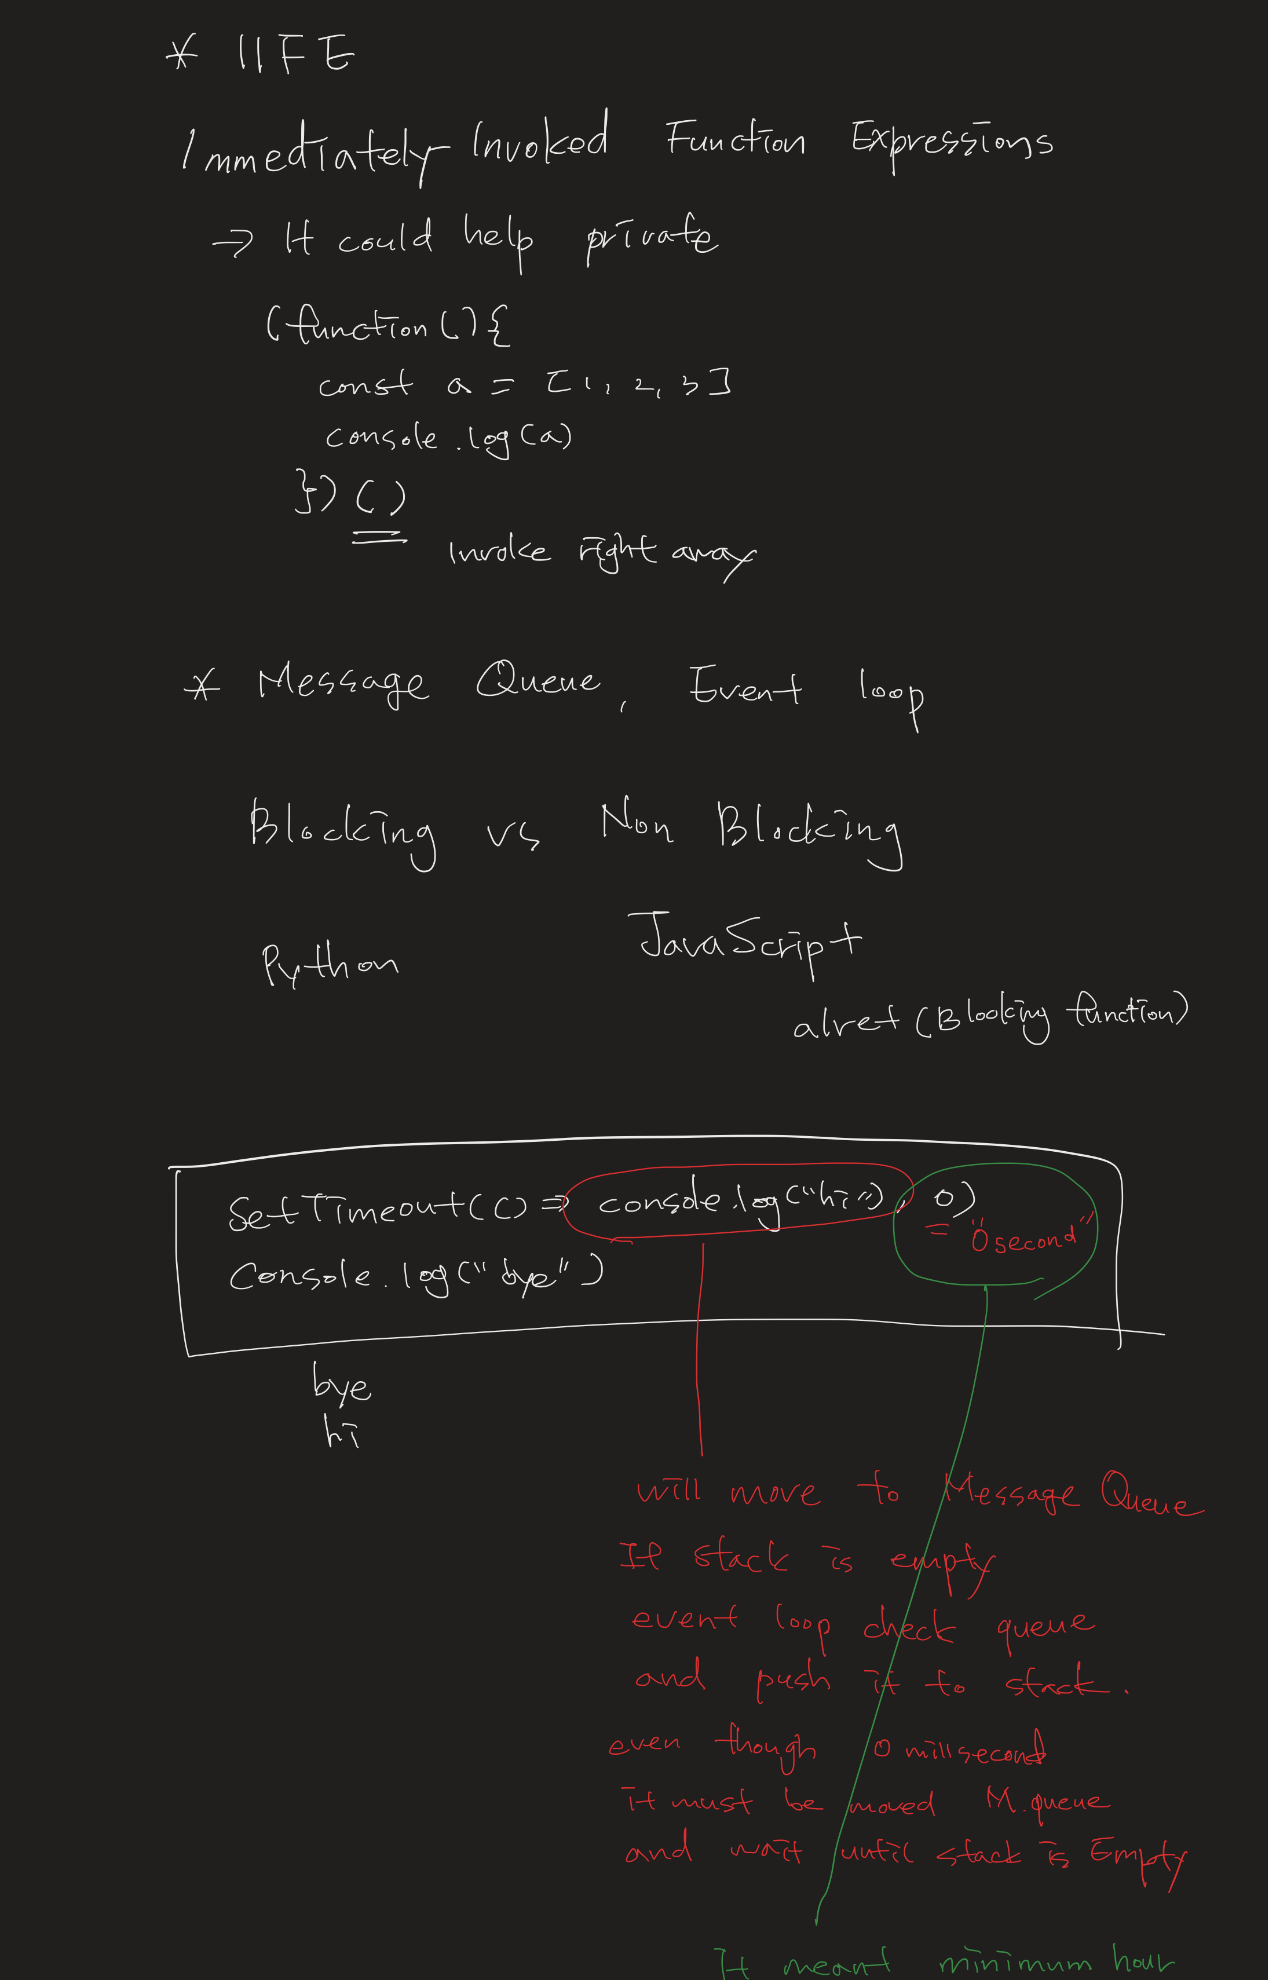 * IIFE
Immediately Invoked Function Expressions
→ It could help private
(function(){
const a = [1, 2, 3]
console.log(a)
})()
Invoke right away
* Message Queue, Event loop
Blocking vs Non Blocking
Python JavaScript
alret (Blocking function)
SetTimeout(() => console.log("hi"), 0)
= "0second"
Console.log("bye")
bye
hi
will move to Message Queue
If stack is empty
event loop check queue
and push it to stack.
even though 0 millsecond
it must be moved M.queue
and wait until stack is Empty
It meant minimum hour